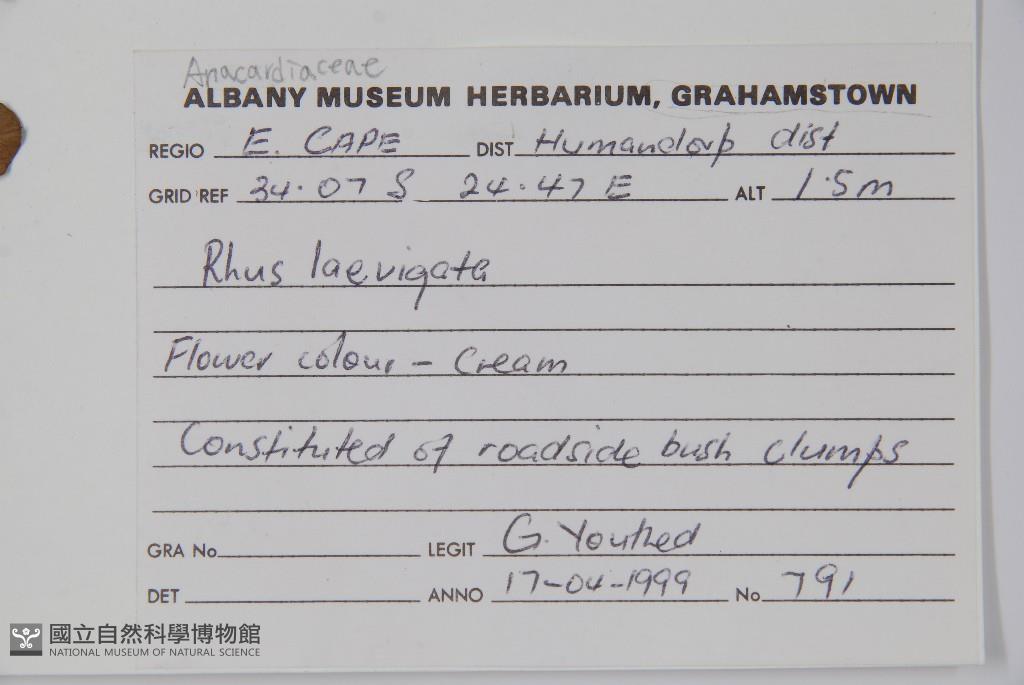 Anacardiaceae
ALBANY MUSEUM HERBARIUM, GRAHAMSTOWN
REGIO E. CAPE DIST Humandorp dist
GRID REF 34.07 S 24.47 E ALT 1.5m
Rhus laevigata
Flower colour - Cream
Constituted of roadside bush clumps
GRA No LEGIT G. Youthed
DET ANNO 17-04-1999 No 791
國立自然科學博物館
NATIONAL MUSEUM OF NATURAL SCIENCE